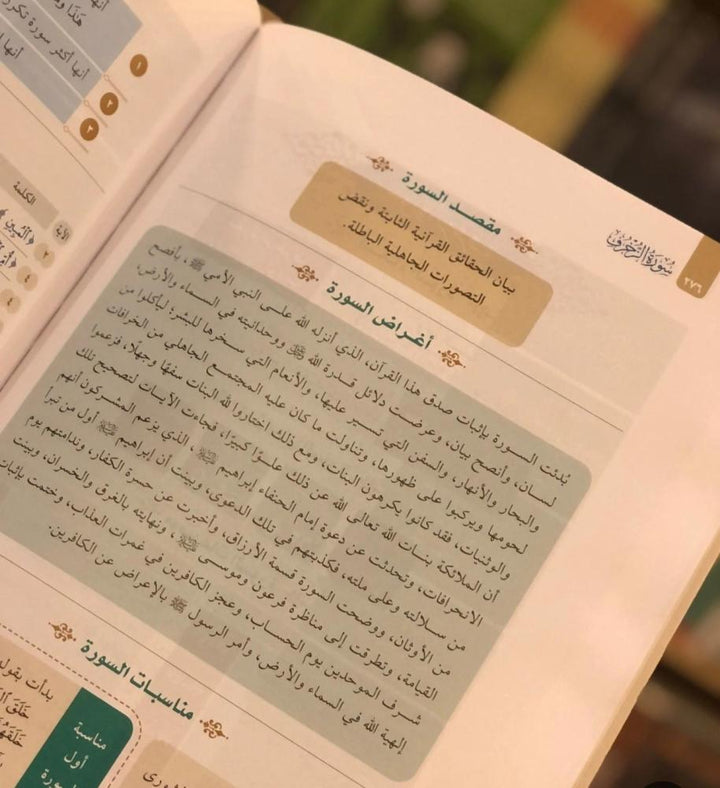 سُورَةُ الزُّخْرُفِ
٢٧٦
مقصد السورة
بيان الحقائق القرآنية الثابتة ونقض
التصورات الجاهلية الباطلة.
أغراض السورة
بُدئت السورة بإثبات صدق هذا القرآن، الذي أنزله الله على النبي الأمي ﷺ، بأفصح
لسان، وأنصح بيان، وعرضت دلائل قدرة الله ﷻ ووحدانيته في السماء والأرض،
والبحار والأنهار، والسفن التي تسير عليها، والأنعام التي سخرها للبشر؛ ليأكلوا من
لحومها ويركبوا على ظهورها، وتناولت ما كان عليه المجتمع الجاهلي من الخرافات
والوثنيات، فقد كانوا يكرهون البنات، ومع ذلك اختاروا لله البنات سفهًا وجهلا، فزعموا
أن الملائكة بنات الله تعالى الله عن ذلك علوًا كبيرًا، فجاءت الآيات لتصحيح تلك
الانحرافات، وتحدثت عن دعوة إمام الحنفاء إبراهيم ﷺ، الذي يزعم المشركون أنهم
من سلالته وعلى ملته، فكذبتهم في تلك الدعوى، وبينت أن إبراهيم ﷺ أول من تبرأ
من الأوثان، ووضحت السورة قسمة الأرزاق، وأخبرت عن حسرة الكفار، وندامتهم يوم
القيامة، وتطرقت إلى مناظرة فرعون وموسى ﷺ، ونهايته بالغرق والخسران، وبينت
شرف الموحدين يوم الحساب، وعجز الكافرين في غمرات العذاب، وختمت بإثبات
إلهية الله في السماء والأرض، وأمر الرسول ﷺ بالإعراض عن الكافرين.
مناسبات السورة
مناسبة
أول
بدأت بقول
أنها أكثر سورة تكرر
١
٢
٣
الكلمة
الآية
٢
٤
٤